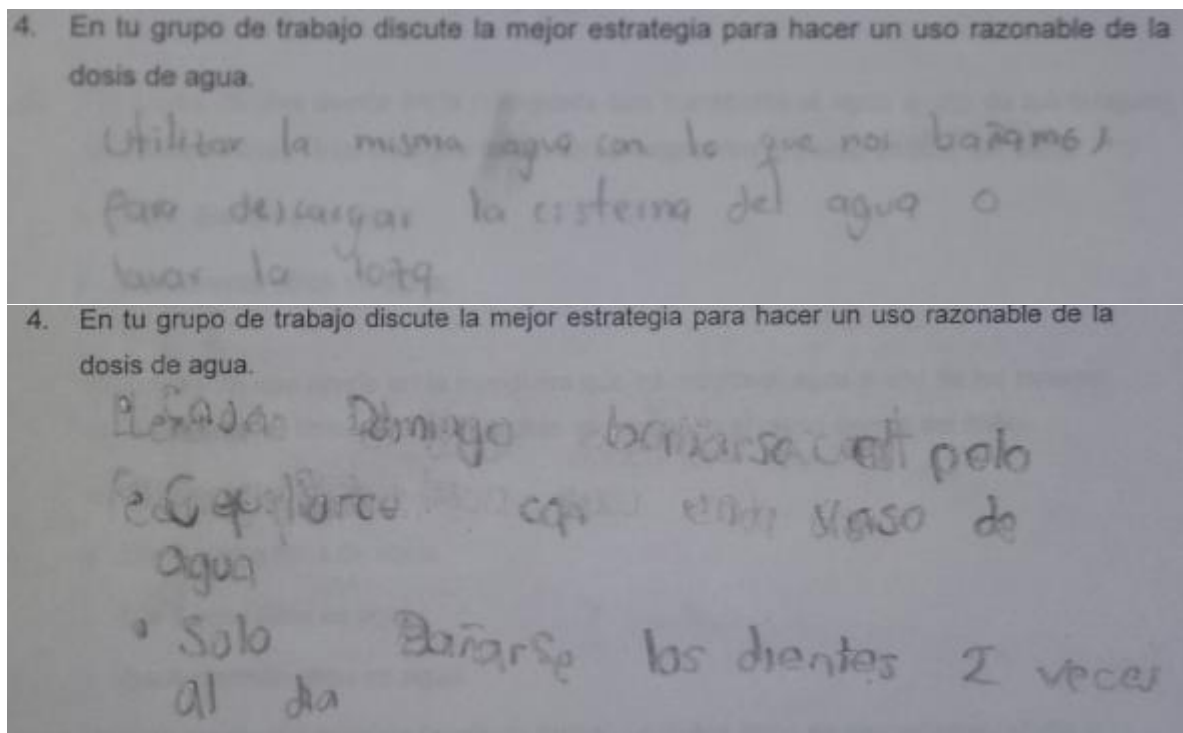 4. En tu grupo de trabajo discute la mejor estrategia para hacer un uso razonable de la
dosis de agua.
Utilizar la misma agua con lo que nos bañamos
para descargar la cisterna del agua o
lavar la loza
4. En tu grupo de trabajo discute la mejor estrategia para hacer un uso razonable de la
dosis de agua.
Domingo pelo
• con vaso de
agua
• Solo Bañarse los dientes 2 veces
al dia